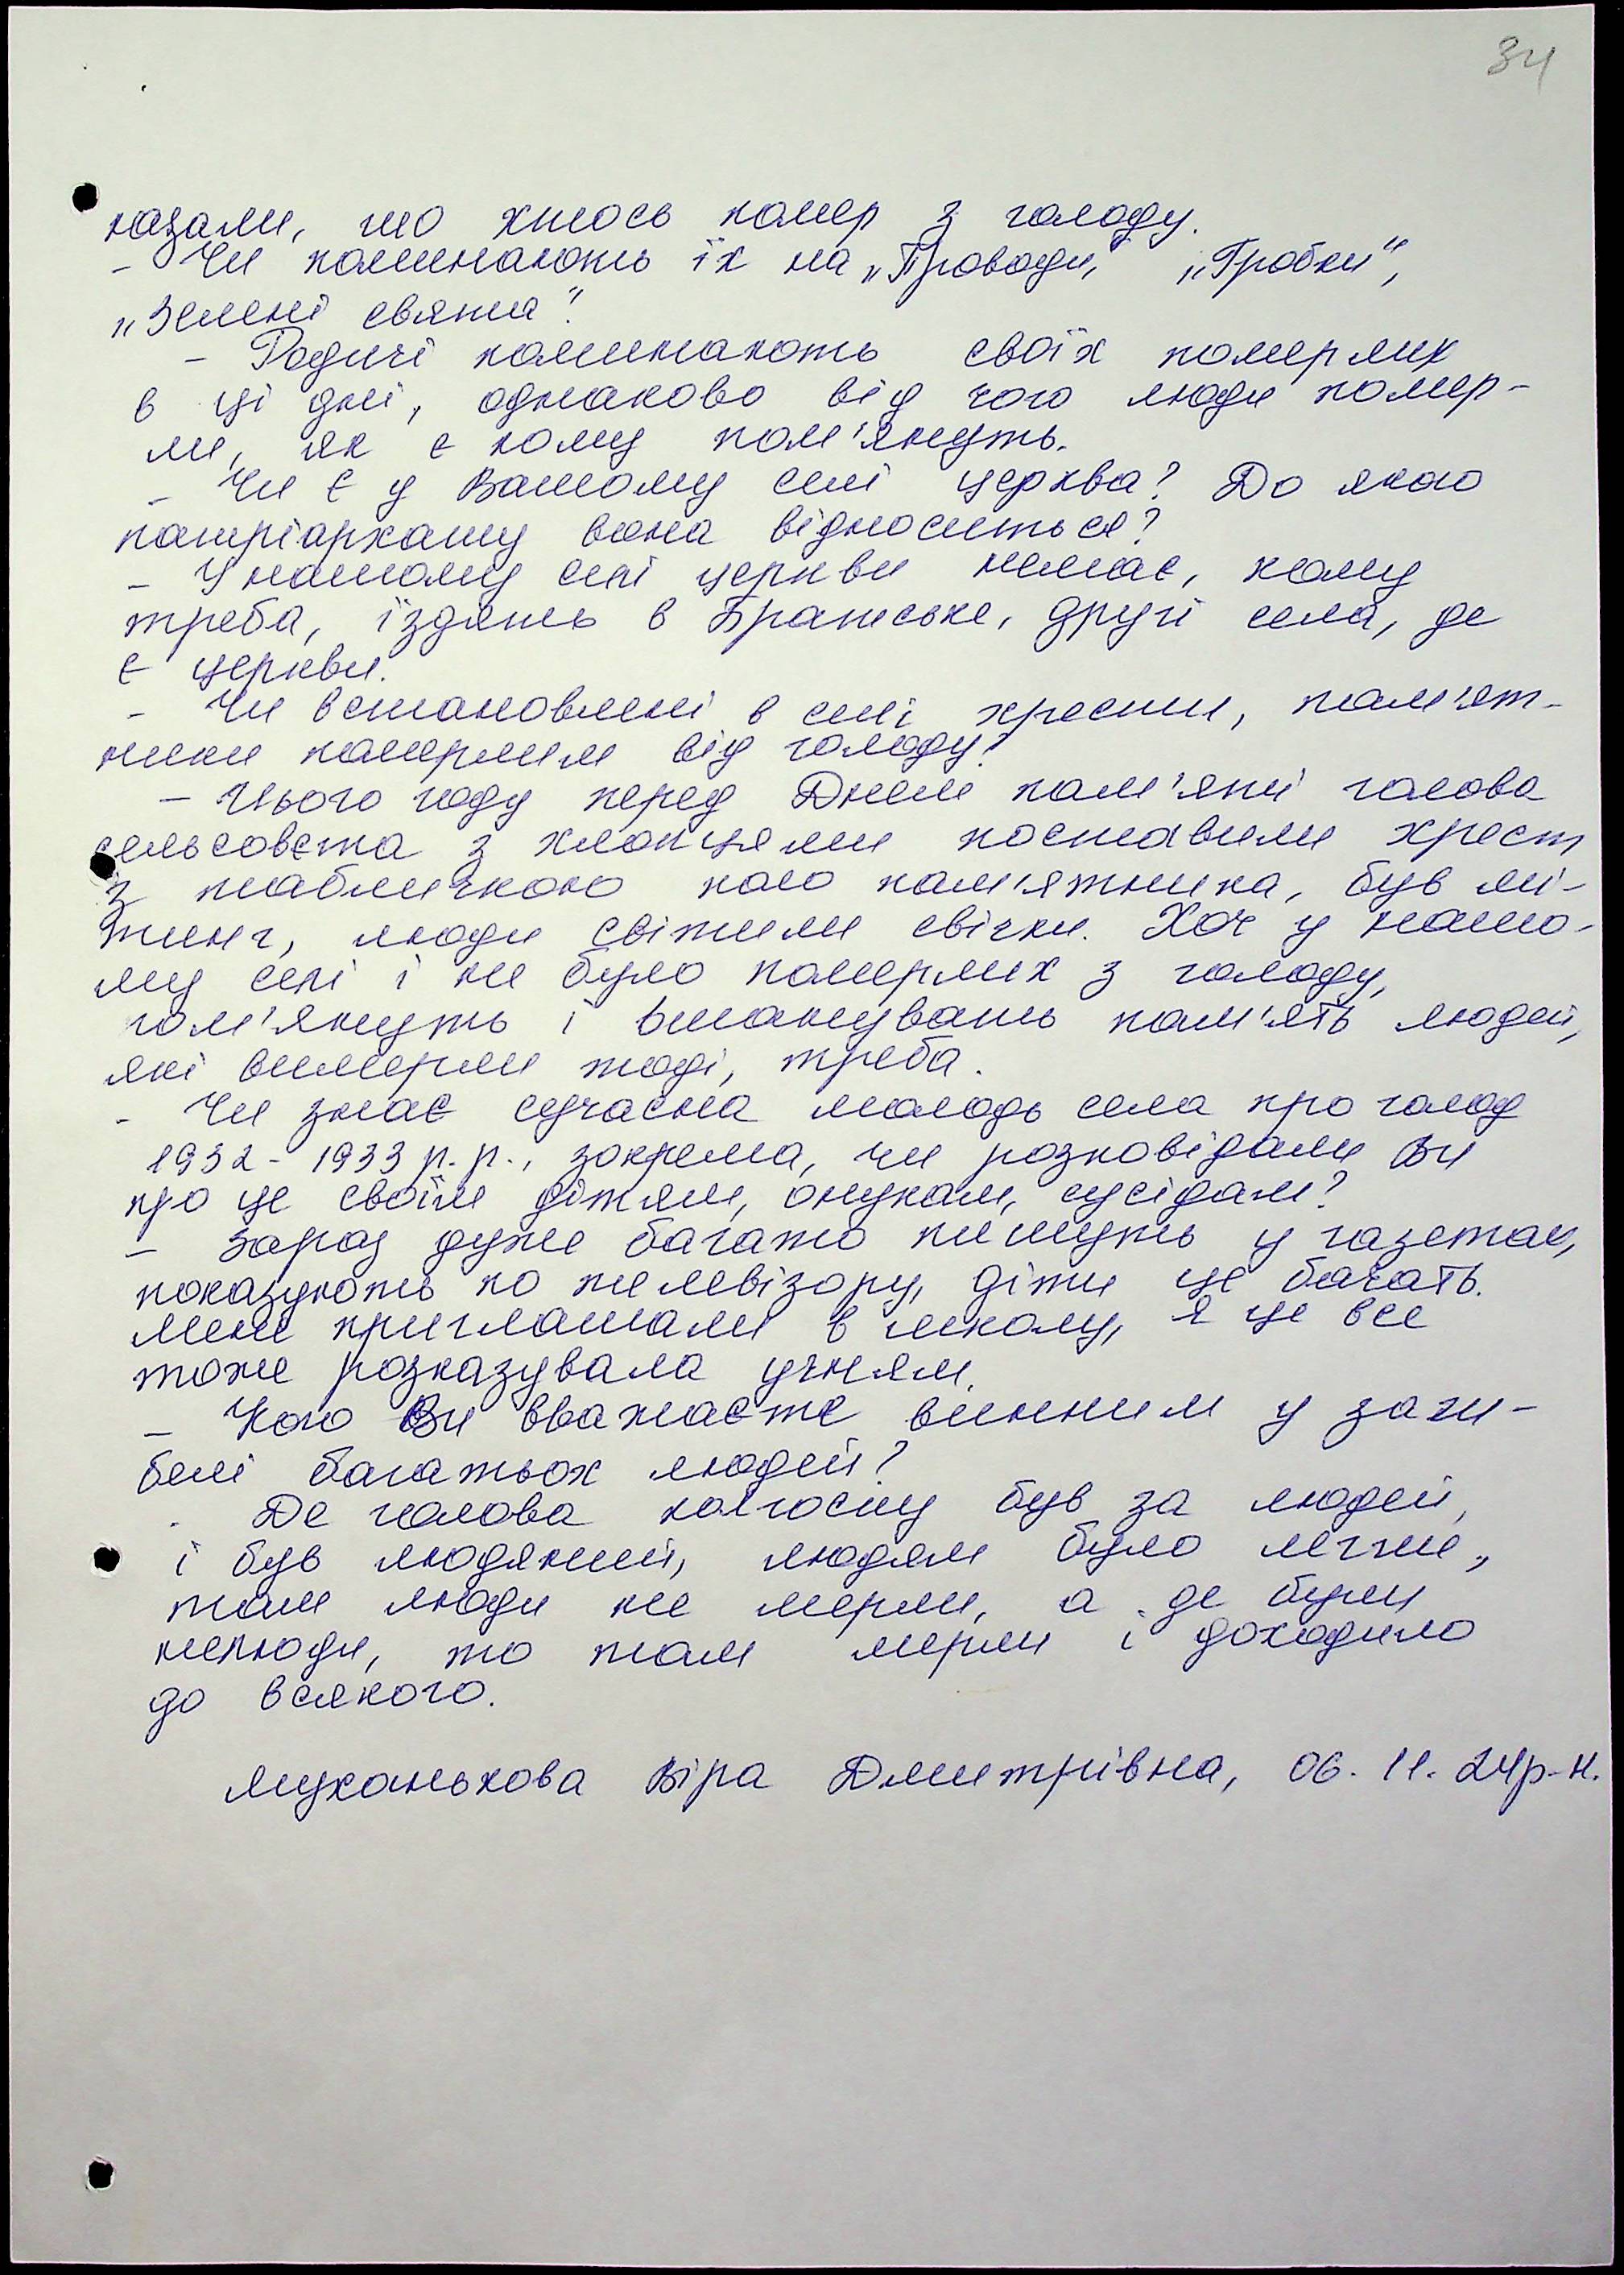 34
казали, що хтось помер з голоду.
- Чи поминають їх на „Проводи", „Гробки",
„Зелені свята".
- Родичі поминають своїх померлих
в ці дні, однаково від чого люди помер-
ли, як є кому пом'януть.
- Чи є у Вашому селі церква? До якого
патріархату вона відноситься?
- У нашому селі церкви немає, кому
треба, їздять в Братське, другі села, де
є церкви.
- Чи встановлені в селі хрести, пам'ят-
ники померлим від голоду?
- Цього году перед Днем пам'яті голова
сельсовєта з хлопцями поставили хрест
з табличкою коло пам'ятника, був мі-
тинг, люди світили свічки. Хоч у нашо-
му селі і не було померлих з голоду,
пом'януть і вшанувать пам'ять людей,
які вимерли тоді, треба.
- Чи знає сучасна молодь села про голод
1932-1933 р.р., зокрема, чи розповідали Ви
про це своїм дітям, онукам, сусідам?
- Зараз дуже багато пишуть у газетах,
показують по телевізору, діти це бачать.
Мене приглашали в школу, я це все
тоже розказувала учням.
- Кого Ви вважаєте винним у заги-
белі багатьох людей?
- Де голова колгоспу був за людей,
і був людяний, людям було легше,
там люди не мерли, а де були
нелюди, то там мерли і доходило
до всякого.
Муханькова Віра Дмитрівна, 06.11.24р.н.